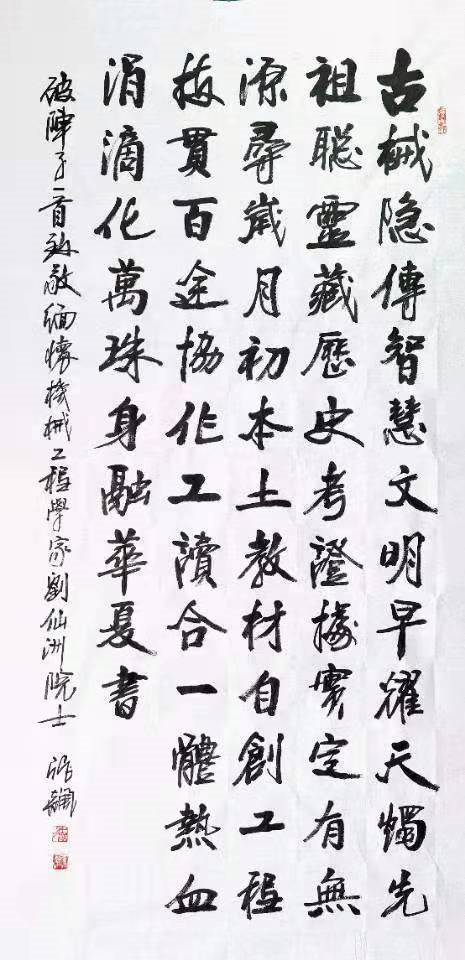 古械隐傳智慧文明早耀天燭先
祖聪靈藏歷史考證據實定有無
源尋嵗月初本土教材自創工程
技貫百途協作工讀合一體熱血
涓滴化萬珠身融華夏書
破陣子一首致敬缅懷機械工程學家劉仙洲院士